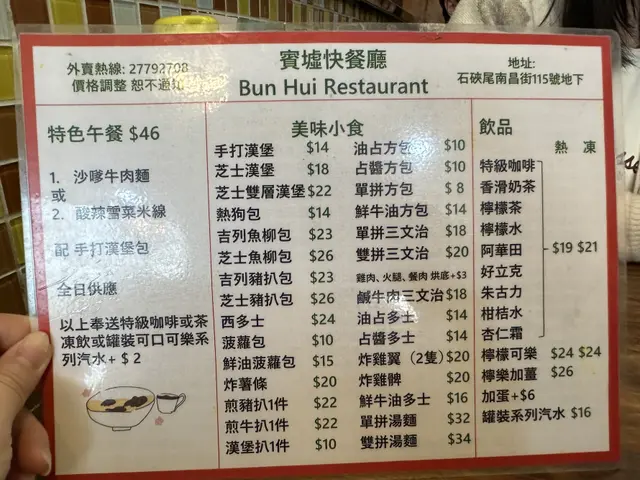 賓墟快餐廳
Bun Hui Restaurant
外賣熱線: 27792708
價格調整 恕不通知
地址:
石硤尾南昌街115號地下
特色午餐 $46
1. 沙嗲牛肉麵
或
2. 酸辣雪菜米線
配 手打漢堡包
全日供應
以上奉送特級咖啡或茶
凍飲或罐裝可口可樂系
列汽水+ $ 2
美味小食
手打漢堡 $14
芝士漢堡 $18
芝士雙層漢堡 $22
熱狗包 $14
吉列魚柳包 $23
芝士魚柳包 $26
吉列豬扒包 $23
芝士豬扒包 $26
西多士 $24
菠蘿包 $10
鮮油菠蘿包 $15
炸薯條 $20
煎豬扒1件 $22
煎牛扒1件 $22
漢堡扒1件 $10
油占方包 $10
占醬方包 $10
單拼方包 $ 8
鮮牛油方包 $14
單拼三文治 $18
雙拼三文治 $20
雞肉、火腿、餐肉 烘底+$3
鹹牛肉三文治 $18
油占多士 $14
占醬多士 $14
炸雞翼 (2隻) $20
炸雞髀 $20
鮮牛油多士 $16
單拼湯麵 $32
雙拼湯麵 $34
飲品
熱 凍
特級咖啡
香滑奶茶
檸檬茶
檸檬水
阿華田 $19 $21
好立克
朱古力
柑桔水
杏仁霜
檸檬可樂 $24 $24
檸樂加薑 $26
加蛋+$6
罐裝系列汽水 $16